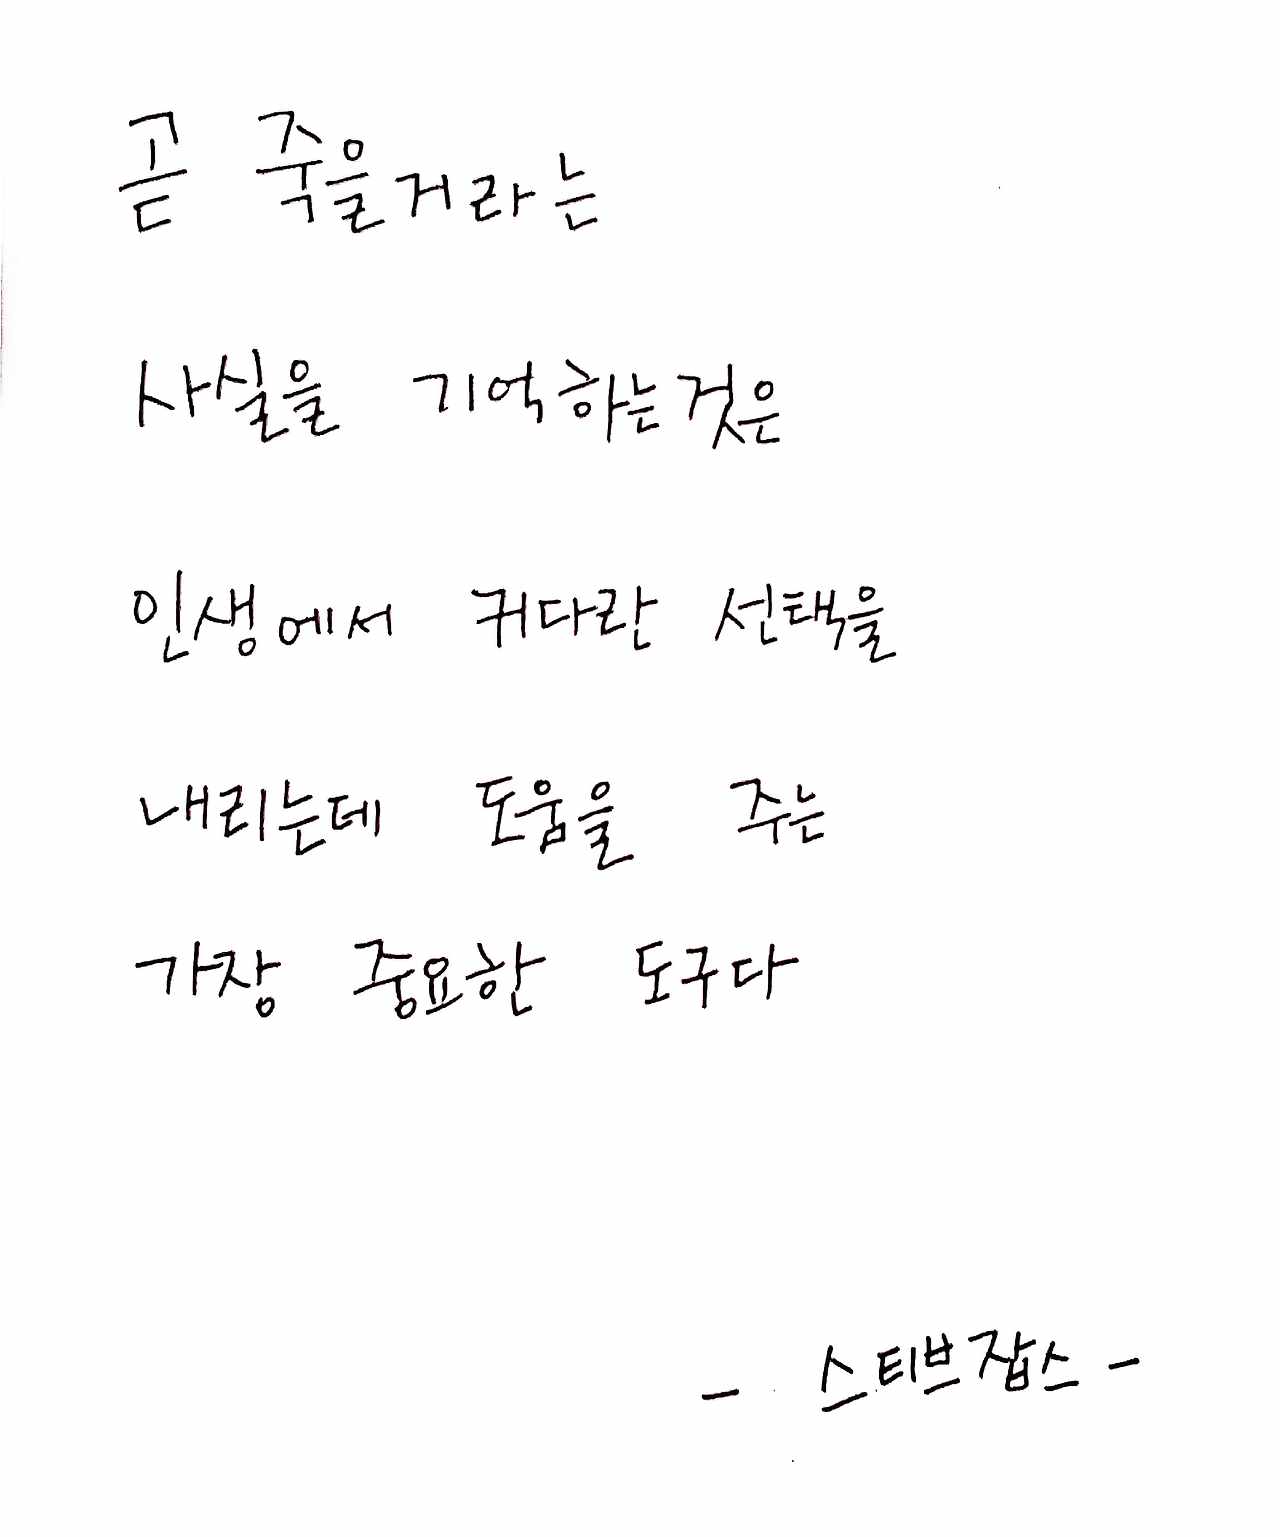 곧 죽을거라는
사실을 기억하는것은
인생에서 귀다란 선택을
내리는데 도움을 주는
가장 중요한 도구다
- 스티브잡스 -